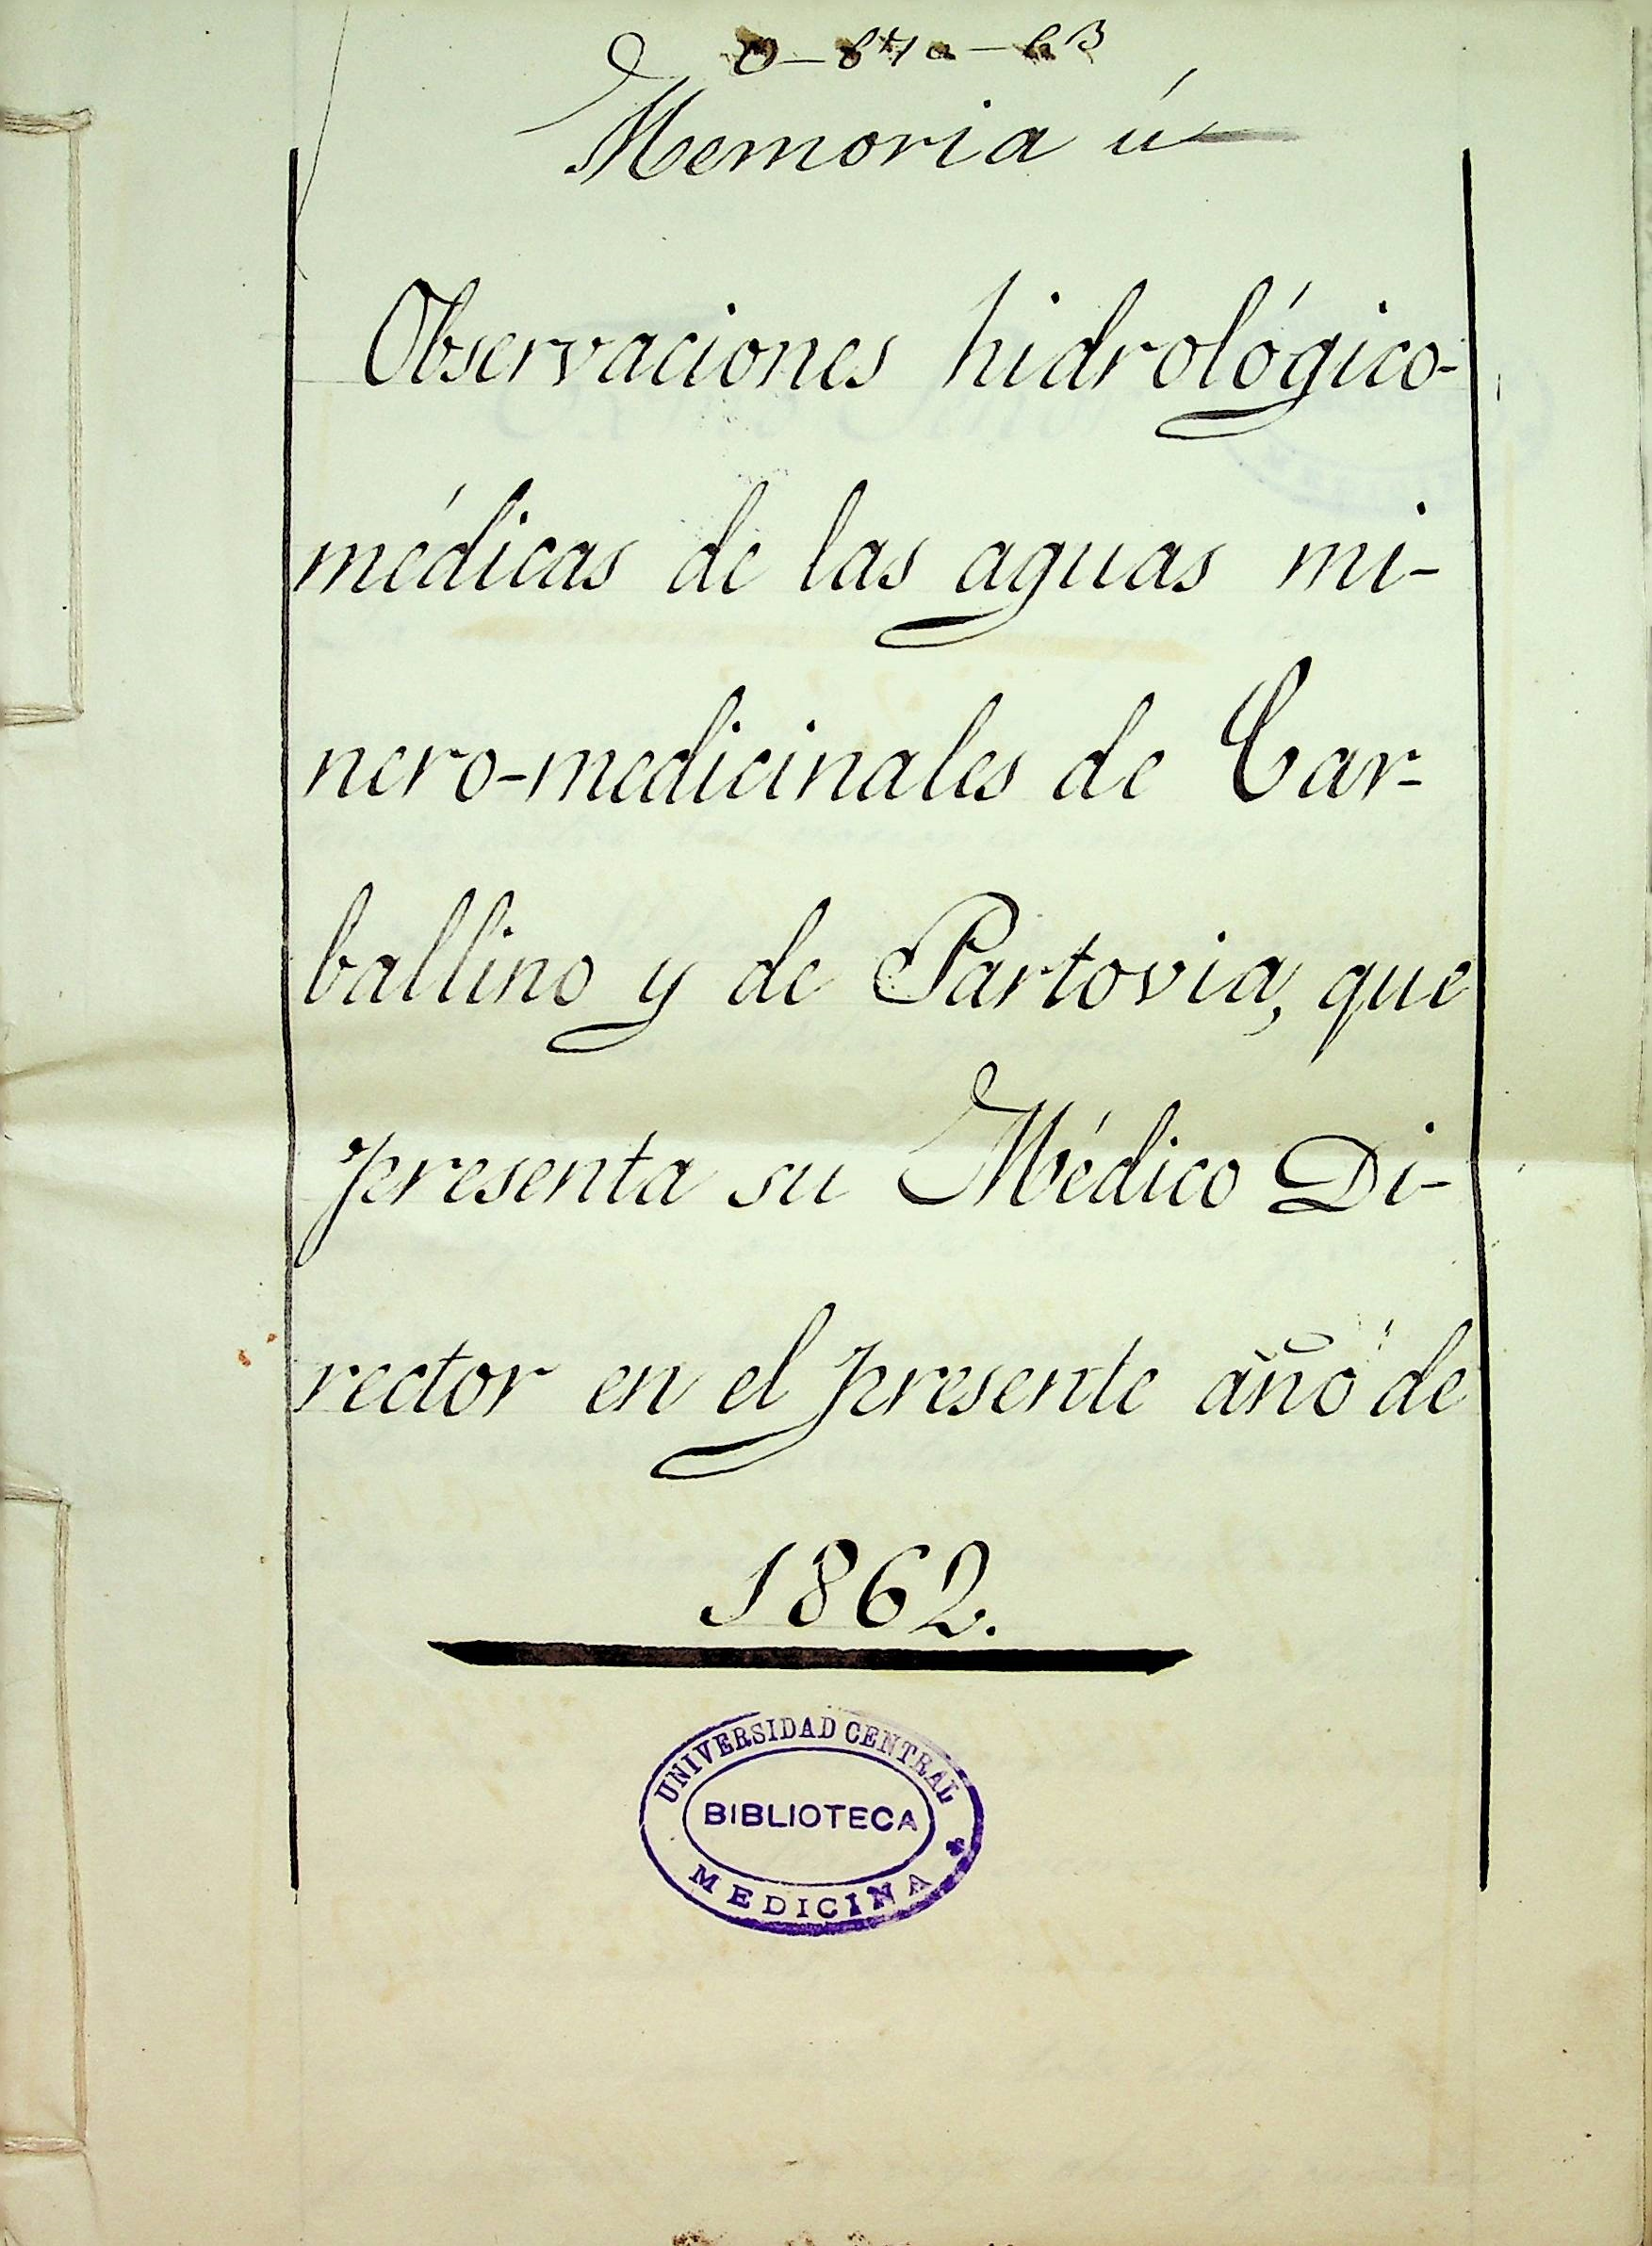 Memoria ú
Observaciones hidrológico-
médicas de las aguas mi-
nero-medicinales de Car-
ballino y de Partovia, que
presenta su Médico Di-
rector en el presente año de
1862.
UNIVERSIDAD CENTRAL
BIBLIOTECA
MEDICINA